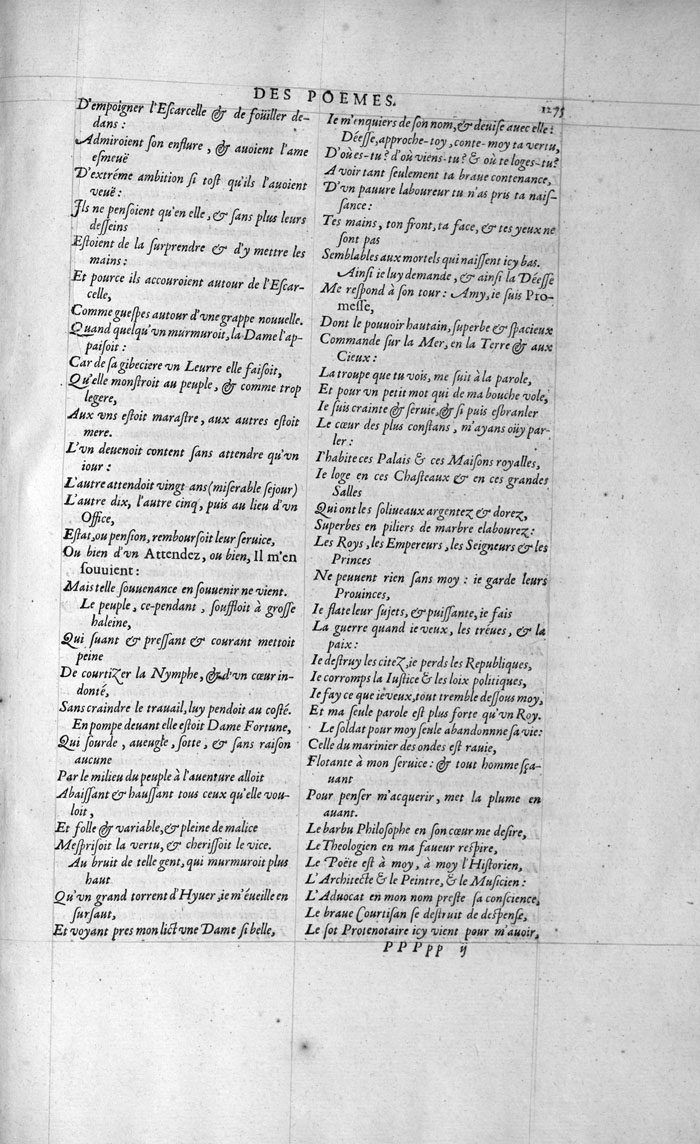 DES POEMES.
1275
D'empoigner l'Eſcarcelle & de foüiller de-
dans :
Admiroient ſon enflure, & auoient l'ame
eſmeuë
D'extréme ambition ſi toſt qu'ils l'auoient
veuë :
Ils ne penſoient qu'en elle, & ſans plus leurs
deſſeins
Eſtoient de la ſurprendre & d'y mettre les
mains :
Et pource ils accouroient autour de l'Eſcar-
celle,
Comme gueſpes autour d'vne grappe nouuelle.
Quand quelqu'vn murmuroit, la Dame l'ap-
paiſoit :
Car de ſa gibeciere vn Leurre elle faiſoit,
Qu'elle monſtroit au peuple, & comme trop
legere,
Aux vns eſtoit maraſtre, aux autres eſtoit
mere.
L'vn deuenoit content ſans attendre qu'vn
iour :
L'autre attendoit vingt ans (miſerable ſejour)
L'autre dix, l'autre cinq, puis au lieu d'vn
Office,
Eſtat, ou penſion, rembourſoit leur ſeruice,
Ou bien d'vn Attendez, ou bien, Il m'en
ſouuient :
Mais telle ſouuenance en ſouuenir ne vient.
Le peuple, ce-pendant, ſouffloit à groſſe
haleine,
Qui ſuant & preſſant & courant mettoit
peine
De courtizer la Nymphe, & d'vn cœur in-
donté,
Sans craindre le trauail, luy pendoit au coſté.
En pompe deuant elle eſtoit Dame Fortune,
Qui ſourde, aueugle, ſotte, & ſans raiſon
aucune
Par le milieu du peuple à l'auenture alloit
Abaiſſant & hauſſant tous ceux qu'elle vou-
loit,
Et folle & variable, & pleine de malice
Meſpriſoit la vertu, & cheriſſoit le vice.
Au bruit de telle gent, qui murmuroit plus
haut
Qu'vn grand torrent d'Hyuer, ie m'éueille en
ſurſaut,
Et voyant pres mon lict vne Dame ſi belle,
Ie m'enquiers de ſon nom, & deuiſe auec elle :
Déeſſe, approche-toy, conte-moy ta vertu,
D'où es-tu ? d'où viens-tu ? & où te loges-tu ?
A voir tant ſeulement ta braue contenance,
D'vn pauure laboureur tu n'as pris ta naiſ-
ſance :
Tes mains, ton front, ta face, & tes yeux ne
ſont pas
Semblables aux mortels qui naiſſent icy bas.
Ainſi ie luy demande, & ainſi la Déeſſe
Me reſpond à ſon tour : Amy, ie ſuis Pro-
meſſe,
Dont le pouuoir hautain, ſuperbe & ſpacieux
Commande ſur la Mer, en la Terre & aux
Cieux :
La troupe que tu vois, me ſuit à la parole,
Et pour vn petit mot qui de ma bouche vole,
Ie ſuis crainte & ſeruie, & ſi puis eſbranler
Le cœur des plus conſtans, m'ayans oüy par-
ler :
I'habite ces Palais & ces Maiſons royalles,
Ie loge en ces Chaſteaux & en ces grandes
Salles
Qui ont les ſoliueaux argentez & dorez,
Superbes en piliers de marbre elabourez :
Les Roys, les Empereurs, les Seigneurs & les
Princes
Ne peuuent rien ſans moy : ie garde leurs
Prouinces,
Ie flate leur ſujets, & puiſſante, ie fais
La guerre quand ie veux, les tréues, & la
paix :
Ie deſtruy les citez, ie perds les Republiques,
Ie corromps la Iuſtice & les loix politiques,
Ie fay ce que ie veux, tout tremble deſſous moy,
Et ma ſeule parole eſt plus forte qu'vn Roy.
Le ſoldat pour moy ſeule abandonnne ſa vie :
Celle du marinier des ondes eſt rauie,
Flotante à mon ſeruice : & tout homme ſça-
uant
Pour penſer m'acquerir, met la plume en
auant.
Le barbu Philoſophe en ſon cœur me deſire,
Le Theologien en ma faueur reſpire,
Le Poëte eſt à moy, à moy l'Hiſtorien,
L'Architecte & le Peintre, & le Muſicien :
L'Aduocat en mon nom preſte ſa conſcience,
Le braue Courtiſan ſe deſtruit de deſpenſe,
Le ſot Protenotaire icy vient pour m'auoir,
PPPpp ij